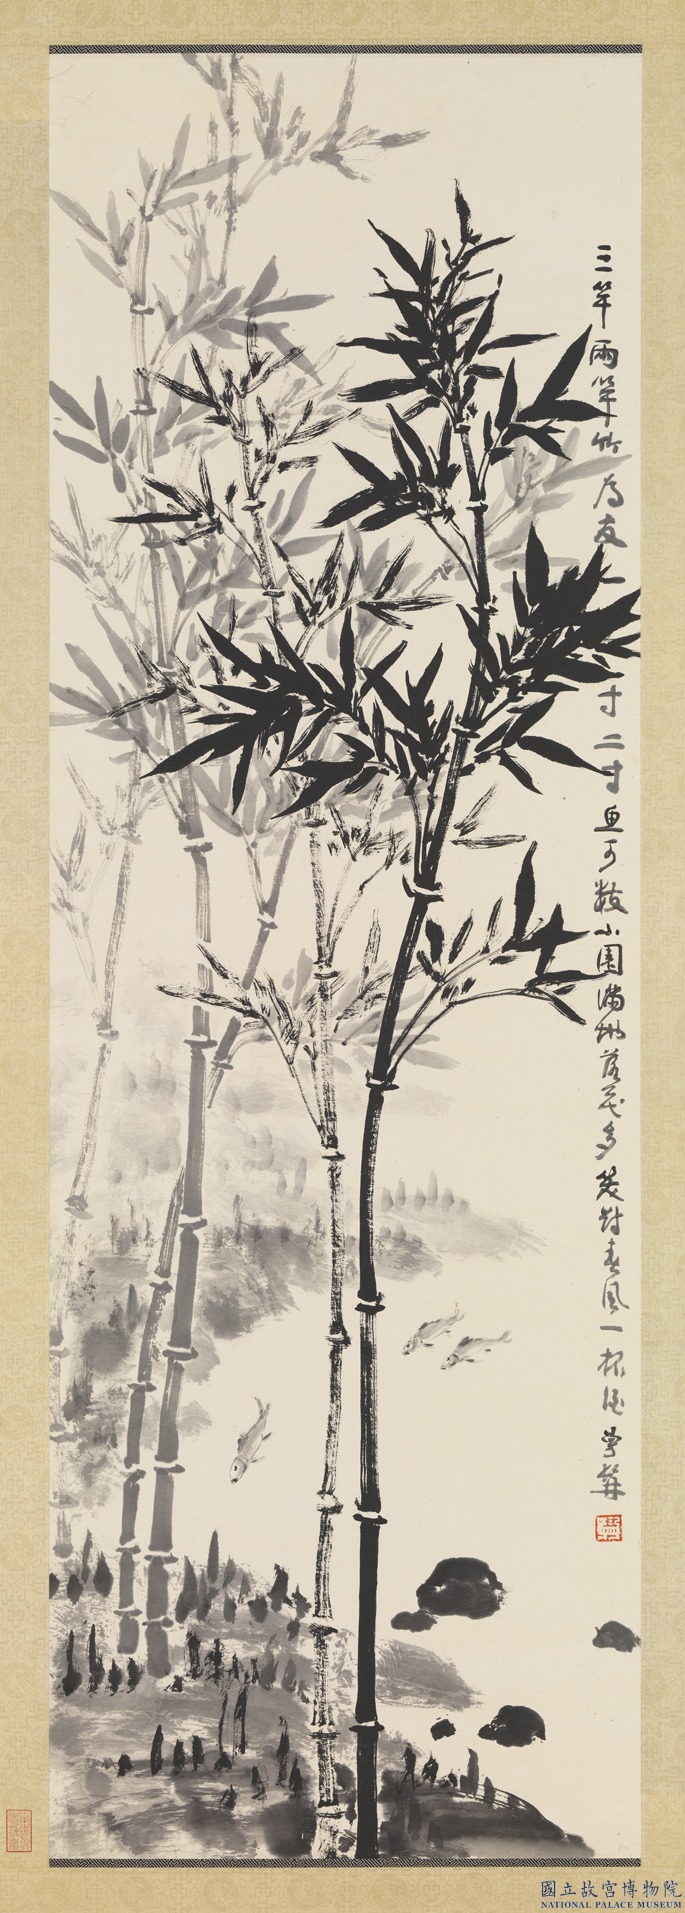 三竿兩竿竹為友一寸二寸魚可數小園滿地落花多笑對春風一杯酒
國立故宮博物院
NATIONAL PALACE MUSEUM